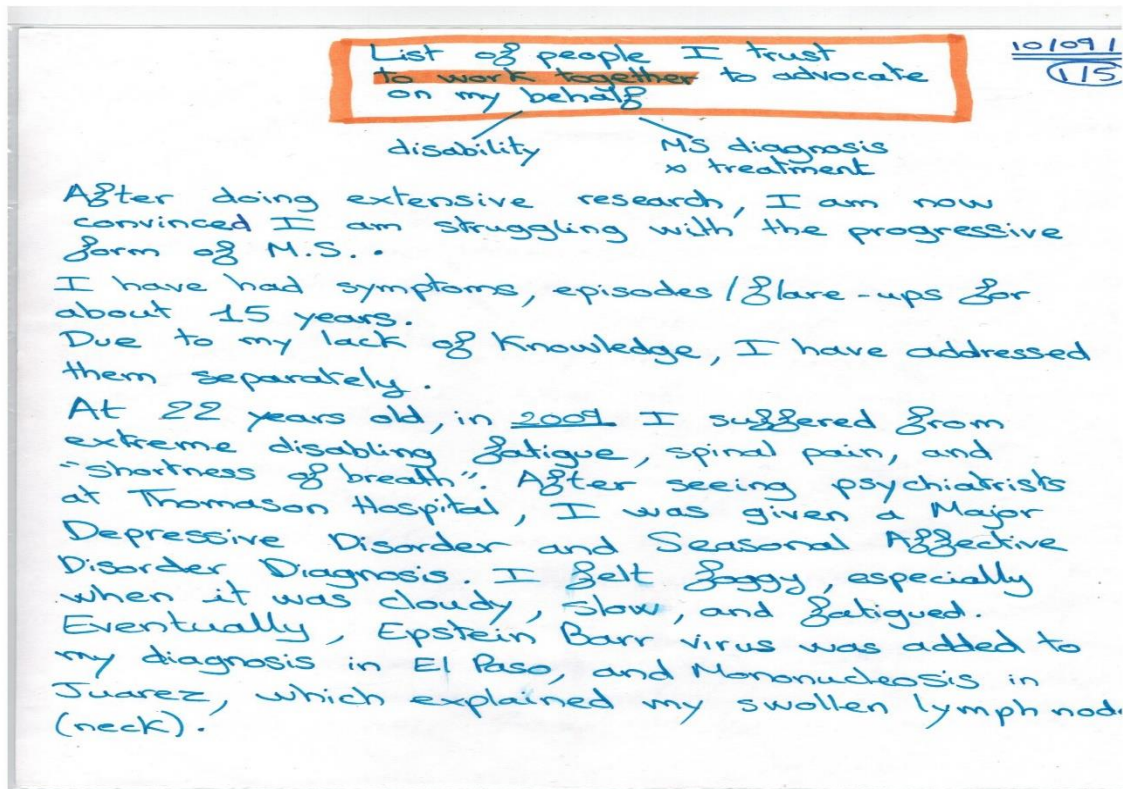 List of people I trust
to work together to advocate
on my behalf
10/09/
1/5
disability
MS diagnosis
& treatment
After doing extensive research, I am now
convinced I am struggling with the progressive
form of M.S..
I have had symptoms, episodes/flare-ups for
about 15 years.
Due to my lack of Knowledge, I have addressed
them separately.
At 22 years old, in 2009 I suffered from
extreme disabling fatigue, spinal pain, and
"shortness of breath". After seeing psychiatrists
at Thomason Hospital, I was given a Major
Depressive Disorder and Seasonal Affective
Disorder Diagnosis. I felt foggy, especially
when it was cloudy, slow, and fatigued.
Eventually, Epstein Barr virus was added to
my diagnosis in El Paso, and Mononucleosis in
Juarez, which explained my swollen lymph node
(neck).